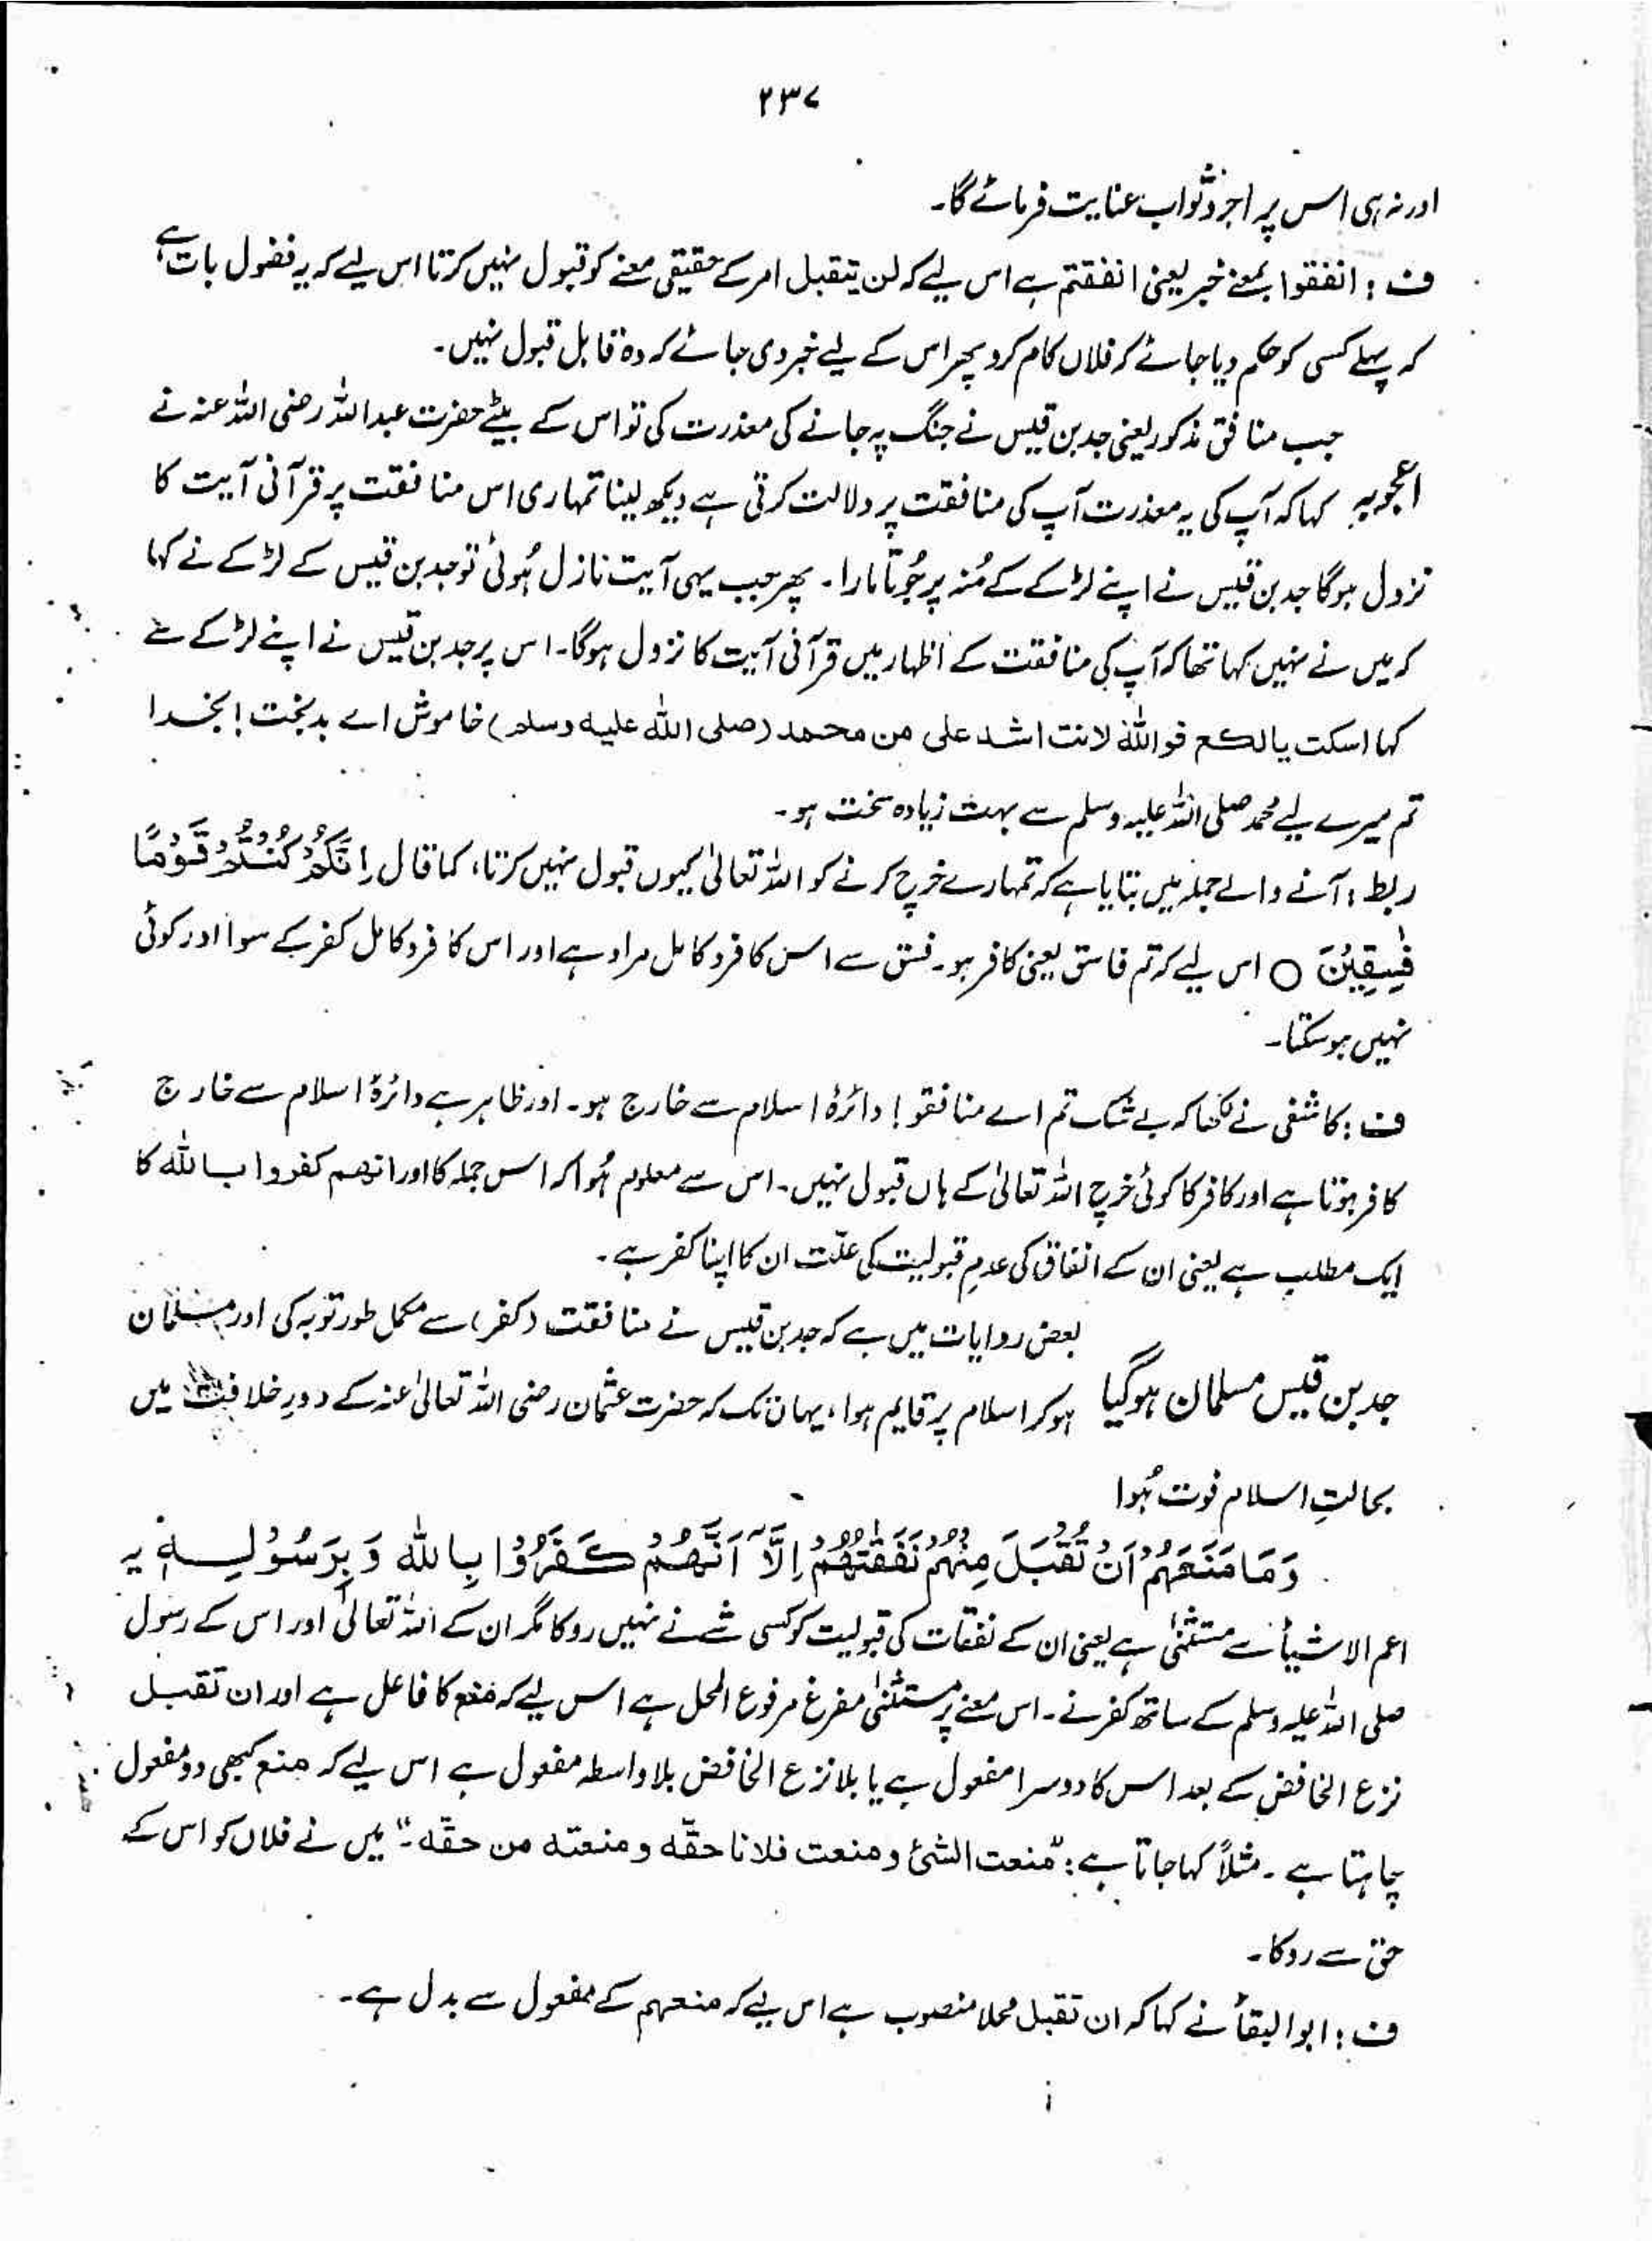 ۲۳۷
اور نہ ہی اس پر اجر و ثواب عنایت فرمائے گا۔
ف : انفقوا بمعنے خبر یعنی انفقتم ہے اس لیے کہ لن یتقبل امر کے حقیقی معنے کو قبول نہیں کرتا اس لیے کہ یہ فضول بات ہے
کہ پہلے کسی کو حکم دیا جائے کہ فلاں کام کرو پھر اس کے لیے خبر دی جائے کہ وہ قابل قبول نہیں۔
جب منافق مذکور یعنی جد بن قیس نے جنگ پہ جانے کی معذرت کی تو اس کے بیٹے حضرت عبداللہ رضی اللہ عنہ نے
اعجوبہ کہا کہ آپ کی یہ معذرت آپ کی منافقت پر دلالت کرتی ہے دیکھ لینا تمہاری اس منافقت پر قرآنی آیت کا
نزول ہوگا جد بن قیس نے اپنے لڑکے کے مُنہ پر جُوتا مارا۔ پھر جب یہی آیت نازل ہُوئی تو جد بن قیس کے لڑکے نے کہا
کہ میں نے نہیں کہا تھا کہ آپ کی منافقت کے اظہار میں قرآنی آیت کا نزول ہوگا۔ اس پر جد بن قیس نے اپنے لڑکے سے
کہا اسکت یا لکع فواللہ لانت اشد علی من محمد (صلی اللہ علیہ وسلم) خاموش اے بدبخت! بخدا
تم میرے لیے محمد صلی اللہ علیہ وسلم سے بہت زیادہ سخت ہو۔
ربط : آنے والے جملہ میں بتایا ہے کہ تمہارے خرچ کرنے کو اللہ تعالیٰ کیوں قبول نہیں کرتا، کما قال اِنَّكُمْ كُنْتُمْ قَوْمًا
فٰسِقِیْنَ ○ اس لیے کہ تم فاسق یعنی کافر ہو۔ فسق سے اس کا فرد کامل مراد ہے اور اس کا فرد کامل کفر کے سوا اور کوئی
نہیں ہو سکتا۔
ف : کاشفی نے لکھا کہ بے شک تم اے منافقو! دائرۂ اسلام سے خارج ہو۔ اور ظاہر ہے دائرۂ اسلام سے خارج
کافر ہوتا ہے اور کافر کا کوئی خرچ اللہ تعالیٰ کے ہاں قبول نہیں۔ اس سے معلوم ہُوا کہ اس جملہ کا اور انھم کفروا باللہ کا
ایک مطلب ہے یعنی ان کے انفاق کی عدمِ قبولیت کی علّت ان کا اپنا کفر ہے۔
بعض روایات میں ہے کہ جد بن قیس نے منافقت (کفر) سے مکمل طور توبہ کی اور مسلمان
جد بن قیس مسلمان ہوگیا ہو کر اسلام پر قایم ہوا، یہاں تک کہ حضرت عثمان رضی اللہ تعالیٰ عنہ کے دورِ خلافت میں
بحالتِ اسلام فوت ہُوا
وَمَا مَنَعَهُمْ اَنْ تُقْبَلَ مِنْهُمْ نَفَقٰتُهُمْ اِلَّآ اَنَّهُمْ كَفَرُوْا بِاللّٰهِ وَ بِرَسُوْلِهٖ یہ
اعم الاشیأ سے مستثنیٰ ہے یعنی ان کے نفقات کی قبولیت کو کسی شے نے نہیں روکا مگر ان کے اللہ تعالیٰ اور اس کے رسول
صلی اللہ علیہ وسلم کے ساتھ کفر نے۔ اس معنے پر مستثنیٰ مفرغ مرفوع المحل ہے اس لیے کہ منع کا فاعل ہے اور ان تقبل
نزع الخافض کے بعد اس کا دوسرا مفعول ہے یا بلا نزع الخافض بلا واسطہ مفعول ہے اس لیے کہ منع کبھی دو مفعول
چاہتا ہے ۔ مثلاً کہا جاتا ہے : "منعت الشئ و منعت فلانا حقّہ و منعتہ من حقّہ۔" میں نے فلاں کو اس کے
حق سے روکا۔
ف : ابو البقأ نے کہا کہ ان تقبل محلا منصوب ہے اس لیے کہ منعہم کے مفعول سے بدل ہے۔